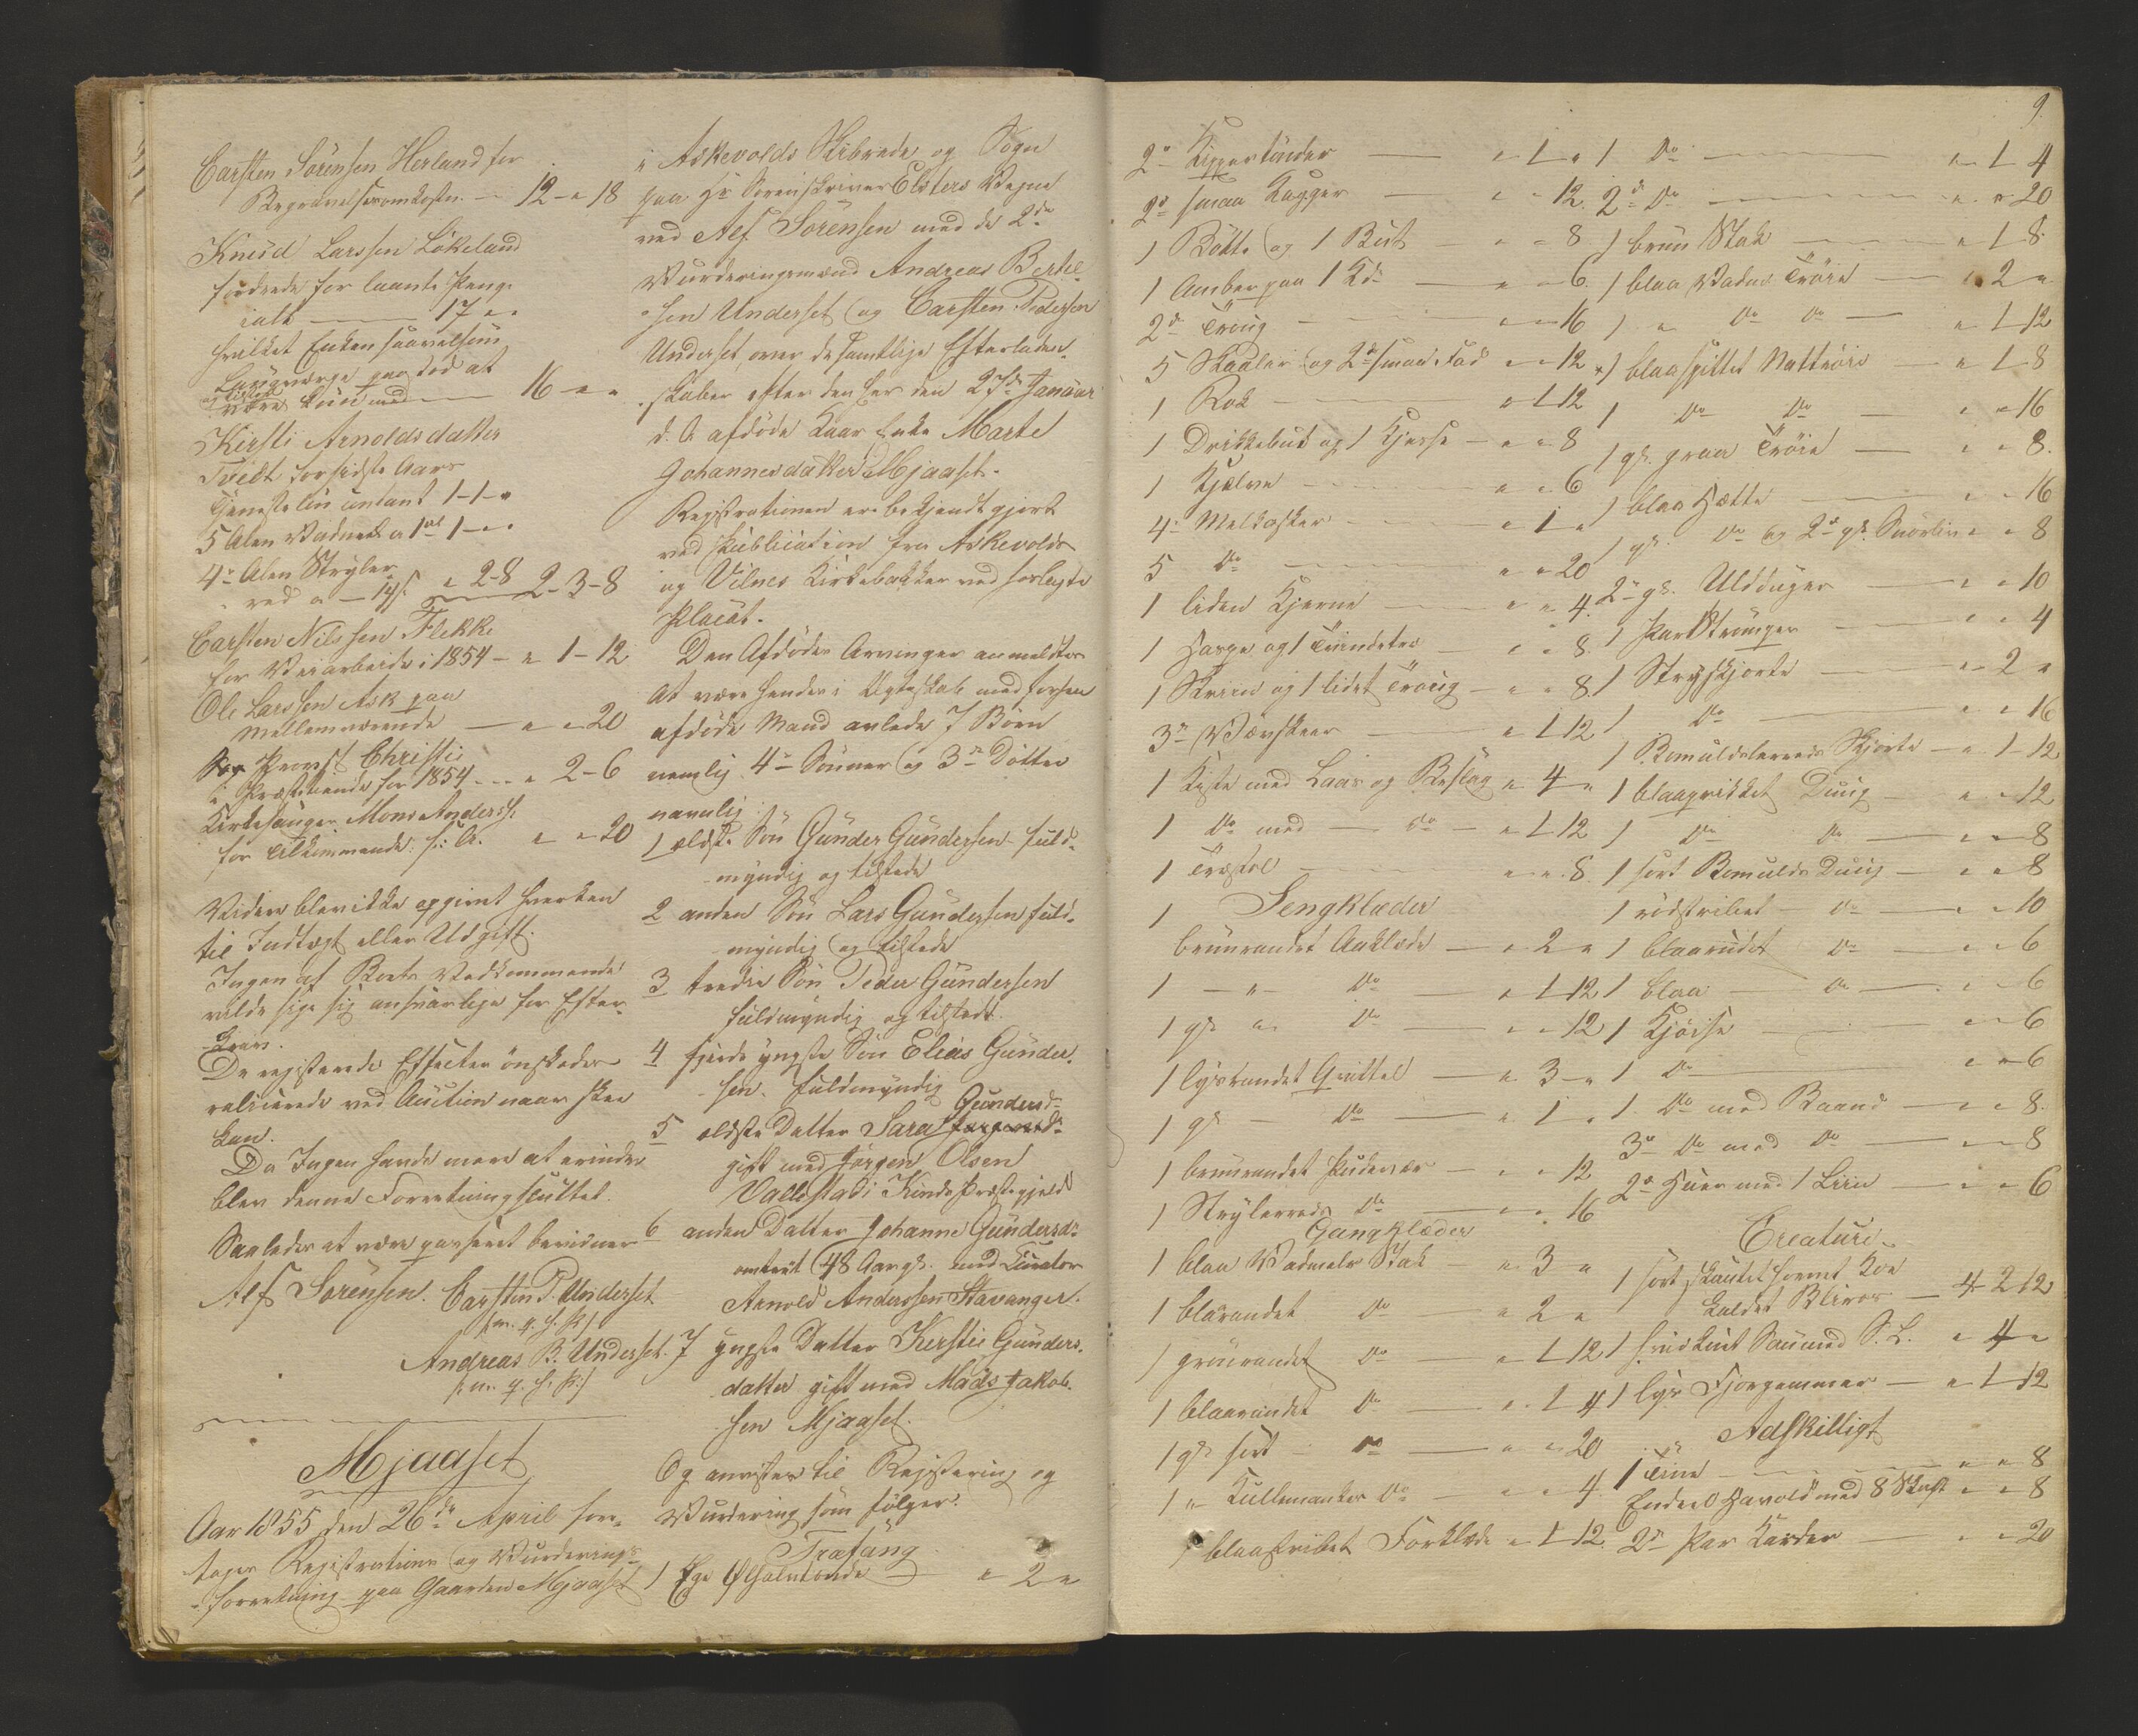 Carsten Sörensen Herland for
Begravelsesomkostn. — 12 - " 18
Knud Larssen Lökeland
fordrede for laante Penge
ialt — 17 " "
hvilket Enken saavelsom
Laugværge paastod at
og tilstod
være kun med — 16 - " "
Kirsti Arnoldsdatter
Tvedt for sidste Aars
Tjenesteløn contant 1 - 1 - "
5 Alen Vadmel a 1 ort 1 - " "
4re Alen Strylær
red a — 14 s. " 2 - 8 2 - 3 - 8
Carsten Nilssen Flekke
for Veiarbeide i 1854 — " 1 - 12
Ole Larssen Ask paa
Mellemværende — " " 20
Provst Christie
i Præstetiende for 1854 - - - " 2 - 6
Kirkesanger Mons Anderss.
for Tilkommende f: A. " " 20
Videre blev ikke opgivet hverken
til Indtægt eller Udgift.
Ingen af Boets Vedkommende
vilde sige sig ansvarlige for Efter-
krav.
De registerede Effecter önskedes
realiserede ved Auction naar skee
kan.
Da Ingen havde mere at erindre
blev denne Forretning sluttet.
Saaledes at være passeret bevidner
Alf Sörensen. Carsten P. Underset
/m. p. f. P/
Andreas B. Underset.
/: m. p. f. P:/
Mjaaset
Aar 1855 den 26de April fore-
tages Registrations og Vurderings-
forretning paa Gaarden Mjaaset
i Askevolds Skibrede og Sogn
paa Hr Sorenskriver Elsters Vegne
ved Alf Sörensen med de 2de
Vurderingsmænd Andreas Berthel-
sen Underset og Carsten Pedersen
Underset over de samtlige Efterladen-
skaber efter den her den 27de Januar
d. A. afdöde Kaar Enke Marte
Johannesdatter Mjaaset.
Registrationen er bekjendtgjort
ved Publication fra Askevolds
og Vilnes Kirkebakker ved forlagte
Placat.
Den Afdödes Arvinger anmeldtes
at være hendes i Ægteskab med forhen
afdöde Mand avlede 7 Börn
nemlig 4re Sönner og 3de Döttre
navnlig
1 ældste Sön Gunder Gundersen fuld-
myndig og tilstede
2 anden Sön Lars Gundersen fuld-
myndig og tilstede
3 tredie Sön Peder Gundersen
fuldmyndig og tilstede.
4 fjerde yngste Sön Elias Gunder-
sen. fuldmyndig
Gundersd.
5 ældste Datter Sara
gift med Jörgen Olsen
Vallestad i Kinds Præstegjeld
6 anden Datter Johanne Gundersd.
omtrent 48 Aar gl. med Curator
Arnold Anderssen Stavanger.
7 yngste Datter Kerstie Gunders-
datter gift med Mads Jakob-
sen Mjaaset.
Og anvistes til Registering og
Vurdering som fölger.
Træfang
1 Ege Ølhalvtønde — " 2 "
9.
2de Kippertönder — " 1 "
2de smaa Kagger — " " 12
1 Bötte og 1 But — " " 8
1 Ambar paa 1 — " " 6
2de Troug — " " 16
5 Skaaler og 2de smaa Fad " " 12
1 Rok — " 1 12
1 Drikkebut og 1 Kjesse — " " 8
1 Kjelve — " " 6
4re Melkasker — " 1 "
5 do — " " 20
1 liden Kjerne — " " 4
1 Harpe og 1 Trindetre — " " 8
1 Skriin og 1 lidet Troug — " " 8
3de Vævskeer — " 1 12
1 Kiste med Laas og Beslag " 4 "
1 do med — do — " 1 12
1 Træstol — " " 8
Sengklæder
1 brunrandet Aaklæde — " 2 "
1 — " — do — " 1 12
1 gl. " do — " " 12
1 lysrandet Qvittel — " 3 - "
1 gl — do — " 1 "
1 brunrandet Pudevær — " " 12
1 Strylerreds do — " " 16
Gangklæder
1 blaa Vadmels Stak — " 3 "
1 blaarandet do — " 2 "
1 grönrandet do — " 1 12
1 blaarandet do — " 1 4
1 gl. sort — do — " " 20
1 " Kullemanker do — " " 4
1 blaastribet Forklæde " 1 12
1 do — " 1 4
2de do — " " 20
1 brun Stak — " 1 8
1 blaa Vadm. Tröie — " 2 "
1 " do do — " 1 12
1 blaaspittet Nattröie — " 1 8
1 do do — " " 16
1 gl. graa Tröie — " " 8
1 blaa Hætte — " " 16
1 gl. do og 2de gl. Snörliv " " 8
2de gl. Uldduger — " " 10
1 Par Strömper — " " 4
1 Stryskjorte — " 2 "
1 do — " " 16
1 Bomuldslerreds Skjorte — " 1 - 12
1 blaaprikket Duug — " " 12
1 do do — " " 8
1 sort Bomulds Duug — " " 8
1 rödstribet — do — " " 10
1 blaarudet do — " " 6
1 blaa — do — " " 6
1 Kjöise — " " 6
1 do — " " 6
1 do med Baand — " " 8
3de do med do — " " 8
2de Huer med 1 Liin — " " 6
Creature
1 sort skautet hornet Koe
kaldet — 4 2 12
1 hvidkint Sau med S. L. " 4 "
1 lys Fjorgammer — " 1 12
Adskilligt
1 Tine — " " 8
Endeel Havold med 8 Skaft " " 8
2de Par Karder — " " 20